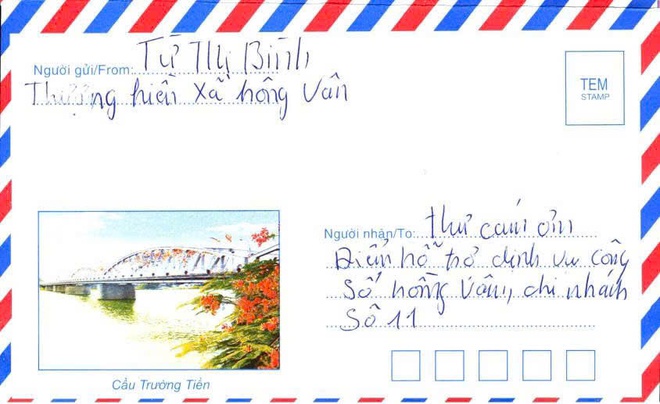 Người gửi/From: Từ Thị Bình
Thượng hiền Xã hồng Vân
TEM
STAMP
Người nhận/To: thư cảm ơn
Điểm hỗ trợ dịnh vụ công
Số hồng Vân, chi nhánh
Số 11
Cầu Trường Tiền